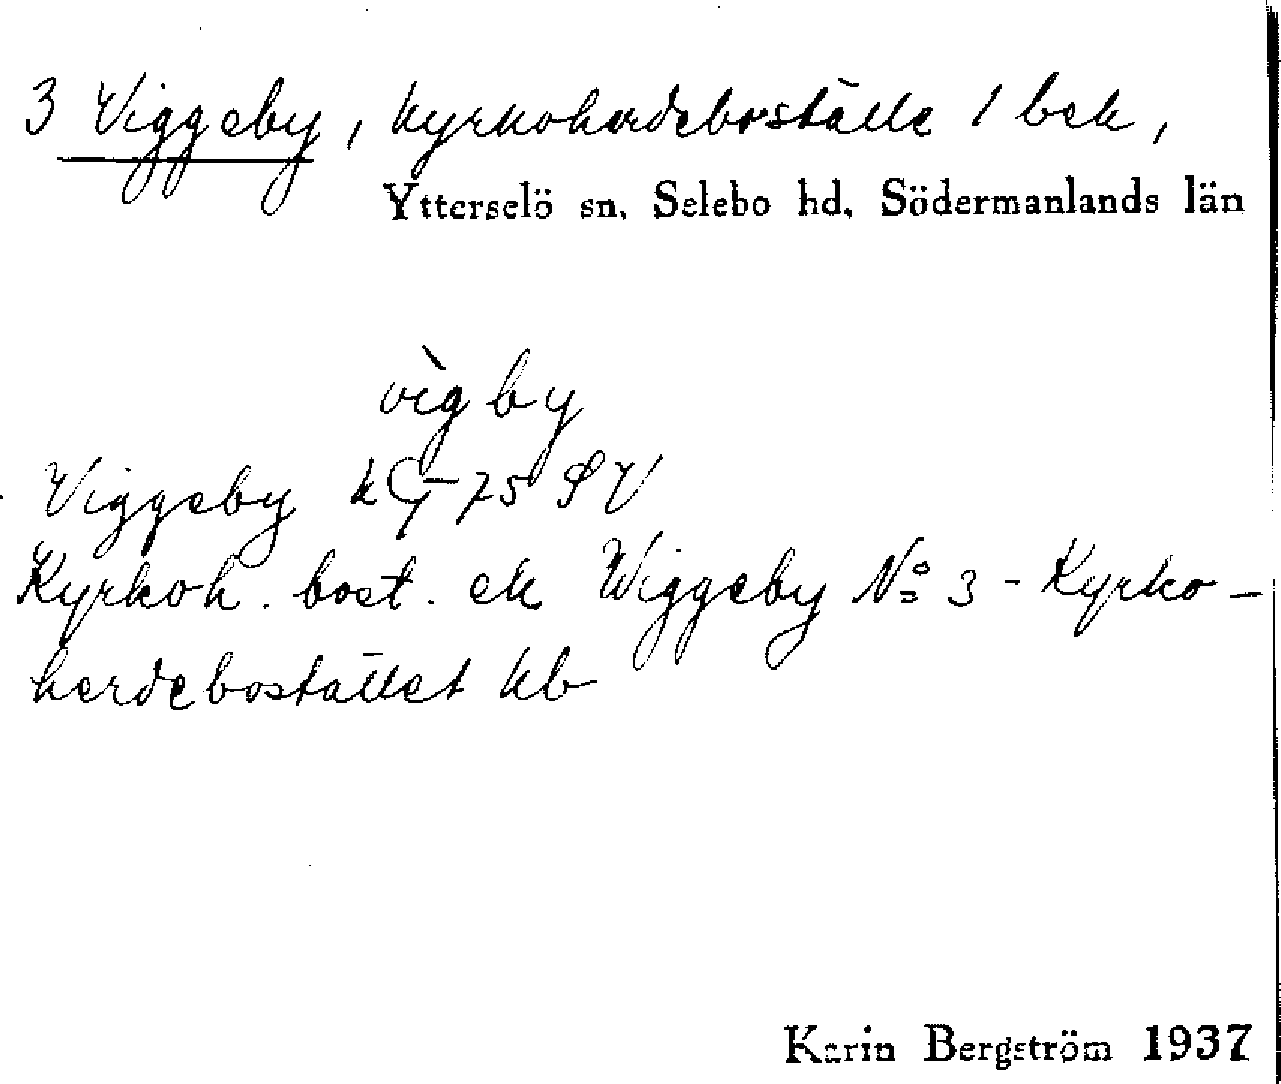 3 Viggeby, kyrkoherdeboställe 1 bek,
Ytterselö sn. Selebo hd. Södermanlands län
vìgby
Viggeby kG 75 SV
Kyrkoh. bost. ek Wiggeby No 3 - Kyrko-
herdebostället kb
Karin Bergström 1937